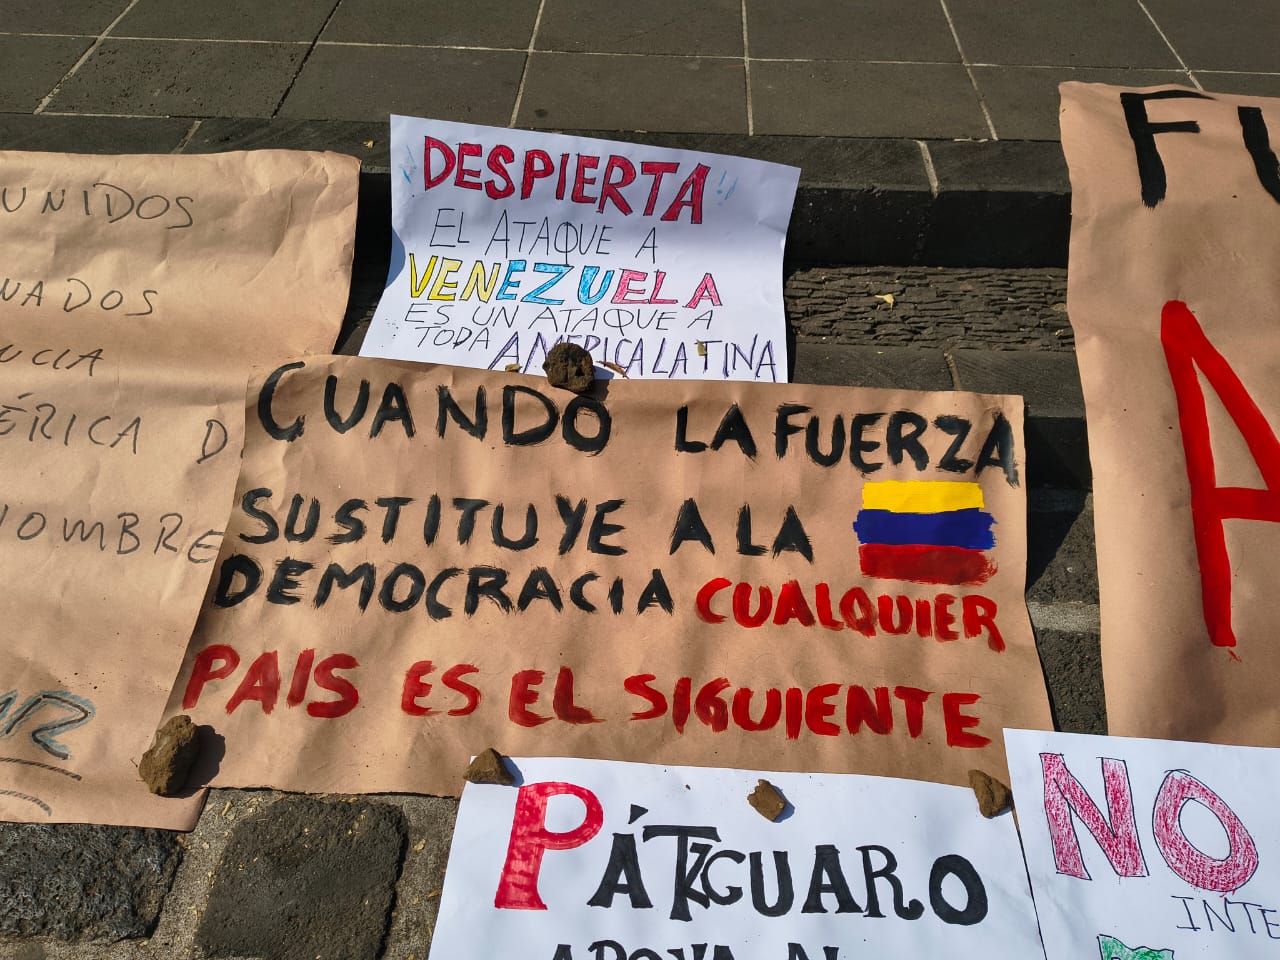 UNIDOS
NADOS
UCIA
ÉRICA D
NOMBRE
¡¡DESPIERTA!!
EL ATAQUE A
VENEZUELA
ES UN ATAQUE A
TODA AMERICA LATINA
CUANDO LA FUERZA
SUSTITUYE A LA
DEMOCRACIA CUALQUIER
PAIS ES EL SIGUIENTE
FU
A
PÁTZCUARO
APOYA AL
NO
INTE